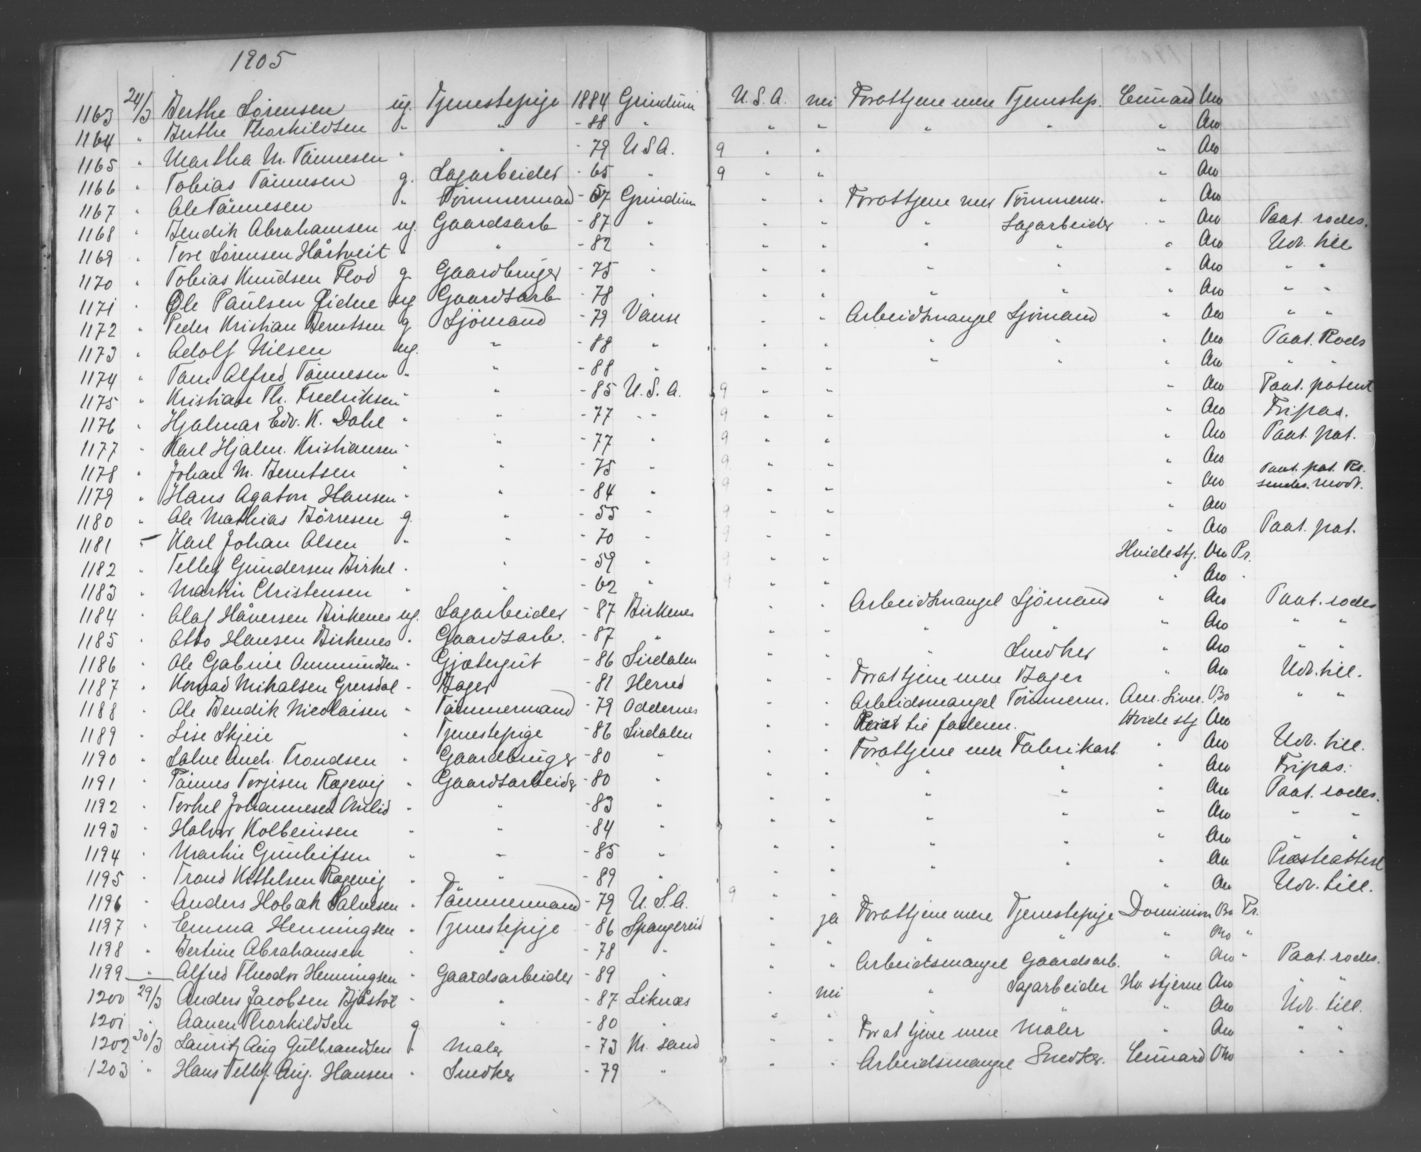 1905
1163 24/3 Berthe Sørensen ug. Tjenestepige 1884 Grindum U.S.A. nei For at tjene mere Tjenstep. Cunard Aro
1164 " Berthe Thorkildsen " " -88 " " " " " " Aro
1165 " Martha M. Tönnesen " " -79 U.S.A. 9 " " " Aro
1166 " Tobias Tönnesen g. Sagarbeider -65 " 9 " " " Aro
1167 " Ole Tönnesen " Tömmermand -57 Grindum " " For at tjene mer Tömmerm. " Aro
1168 " Bendik Abrahamsen ug Gaardsarb -87 " " " " Sagarbeider " Aro Paat. rodes.
1169 " Tore Sörensen Hårtveit " " -82 " " " " " " Aro Udv. till
1170 " Tobias Knudsen Flod g Gaardbruger -75 " " " " " " Aro " "
1171 " Ole Paulsen Eidne ug Gaardsarb -78 " " " " " " Aro " "
1172 " Peder Kristian Berntsen g Sjömand -79 Vanse " " Arbeidsmangel Sjömand " Aro " "
1173 " Adolf Nilsen ug. " -88 " " " " " " Aro Paat. Rods
1174 " Tom Alfred Tönnesen " " -88 " " " " " " Aro " "
1175 " Kristian Th. Fredriksen " " -85 U.S.A. 9 " " " Aro Paat. patent
1176 " Hjalmar Edv. K. Dahl " " -77 " " 9 " " " Aro Fripas.
1177 " Karl Hjalm. Kristiansen " " -77 " 9 " " " Aro Paat. pat.
1178 " Johan M. Berntsen " " -75 " 9 " " " Aro
1179 " Hans Agaton Hansen " " -84 " 9 " " " Aro Paat. pat. Re. sendes. modt.
1180 " Ole Mathias Börresen g. " -55 " 9 " " " Aro
1181 " Karl Johan Olsen " " -70 " 9 " " " Aro Paat. pat.
1182 " Tellef Gundersen Birkel " " -59 " 9 " " Hvidestj. Aro Pr.
1183 " Martin Christensen " " -62 " 9 " " " Aro "
1184 " Olaf Håversen Birkenes ug. Sagarbeider -87 Birkenes " " Arbeidsmangel Sjömand " Aro Paat. rodes
1185 " Otto Hansen Birkenes " Gaardsarb. -87 " " " " " " Aro " "
1186 " Ole Gabriel Ommundsen " Gjætergut -86 Sirdalen " " " Snedker " Aro " "
1187 " Konrad Mikalsen Grersdal " Bager -81 Herred " " For at tjene mere Bager " Aro Udv. till.
1188 " Ole Bendik Nicolaisen " Tömmermand -79 Oddernes " " Arbeidsmangel Tömmerm. Am. Linie. Bo " "
1189 " Lise Skjeie " Tjenestepige -86 Sirdalen " " Reist til faderen. Hvidestj Aro
1190 " Salve Andr. Trondsen " Gaardbruger -80 " " " For at tjene mer Fabrikarb " Aro Udv. till.
1191 " Tönnes Torjisen Ragevig " Gaardsarbeider -80 " " " " " " Aro Fripas.
1192 " Torkel Johannesen Omlid " " -83 " " " " " " Aro Paat. rodes.
1193 " Halvor Kolbeinsen " " -84 " " " " " " Aro " "
1194 " Martin Gunleifsen " " -85 " " " " " " Aro " "
1195 " Trond Kittilsen Ragevig " " -89 " " " " " " Aro Præsteattest
1196 " Anders Hobæk Salvesen " Tömmermand -79 U.S.A. 9 " " " Aro Udv. till.
1197 " Emma Henningsen " Tjenestepige -86 Spangereid " ja For at tjene mere Tjenestepige Dominion Bo Pr.
1198 " Bertine Abrahamsen " " -78 " " " " " " Mo "
1199 " Alfred Theodor Henningsen " Gaardsarbeider -89 " " " Arbeidsmangel Gaardsarb. " Aro " Paat. rodes.
1200 29/3 Anders Jacobsen Bjåstol " " -87 Liknæs " nei " Sagarbeider Hv. stjerne Aro " "
1201 " Aanen Thorkildsen g " -80 " " " " " " Aro Udv. till.
1202 30/3 Lauritz Aug Gulbrandsen " Maler -73 Kr. sand " " For at tjene mere Maler " Aro " "
1203 " Hans Tellef Aug. Hansen " Snedker -79 " " " Arbeidsmangel Snedker. Cunard Mo " "